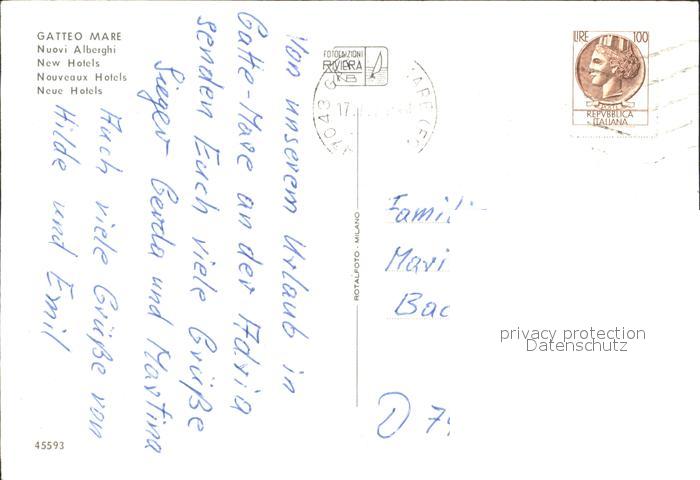 GATTEO MARE
Nuovi Alberghi
New Hotels
Nouveaux Hotels
Neue Hotels
FOTOEDIZIONI
RIVIERA
LIRE 100
REPVBBLICA
ITALIANA
47043
17.
MARE
Von unserem Urlaub in
Gatte-Mare an der Adria
senden Euch viele Grüße
Sieger Gerda und Martina
Auch viele Grüße von
Hilde und Emil
ROTALFOTO - MILANO
Famil
Mari
Bac
D 7
privacy protection
Datenschutz
45593